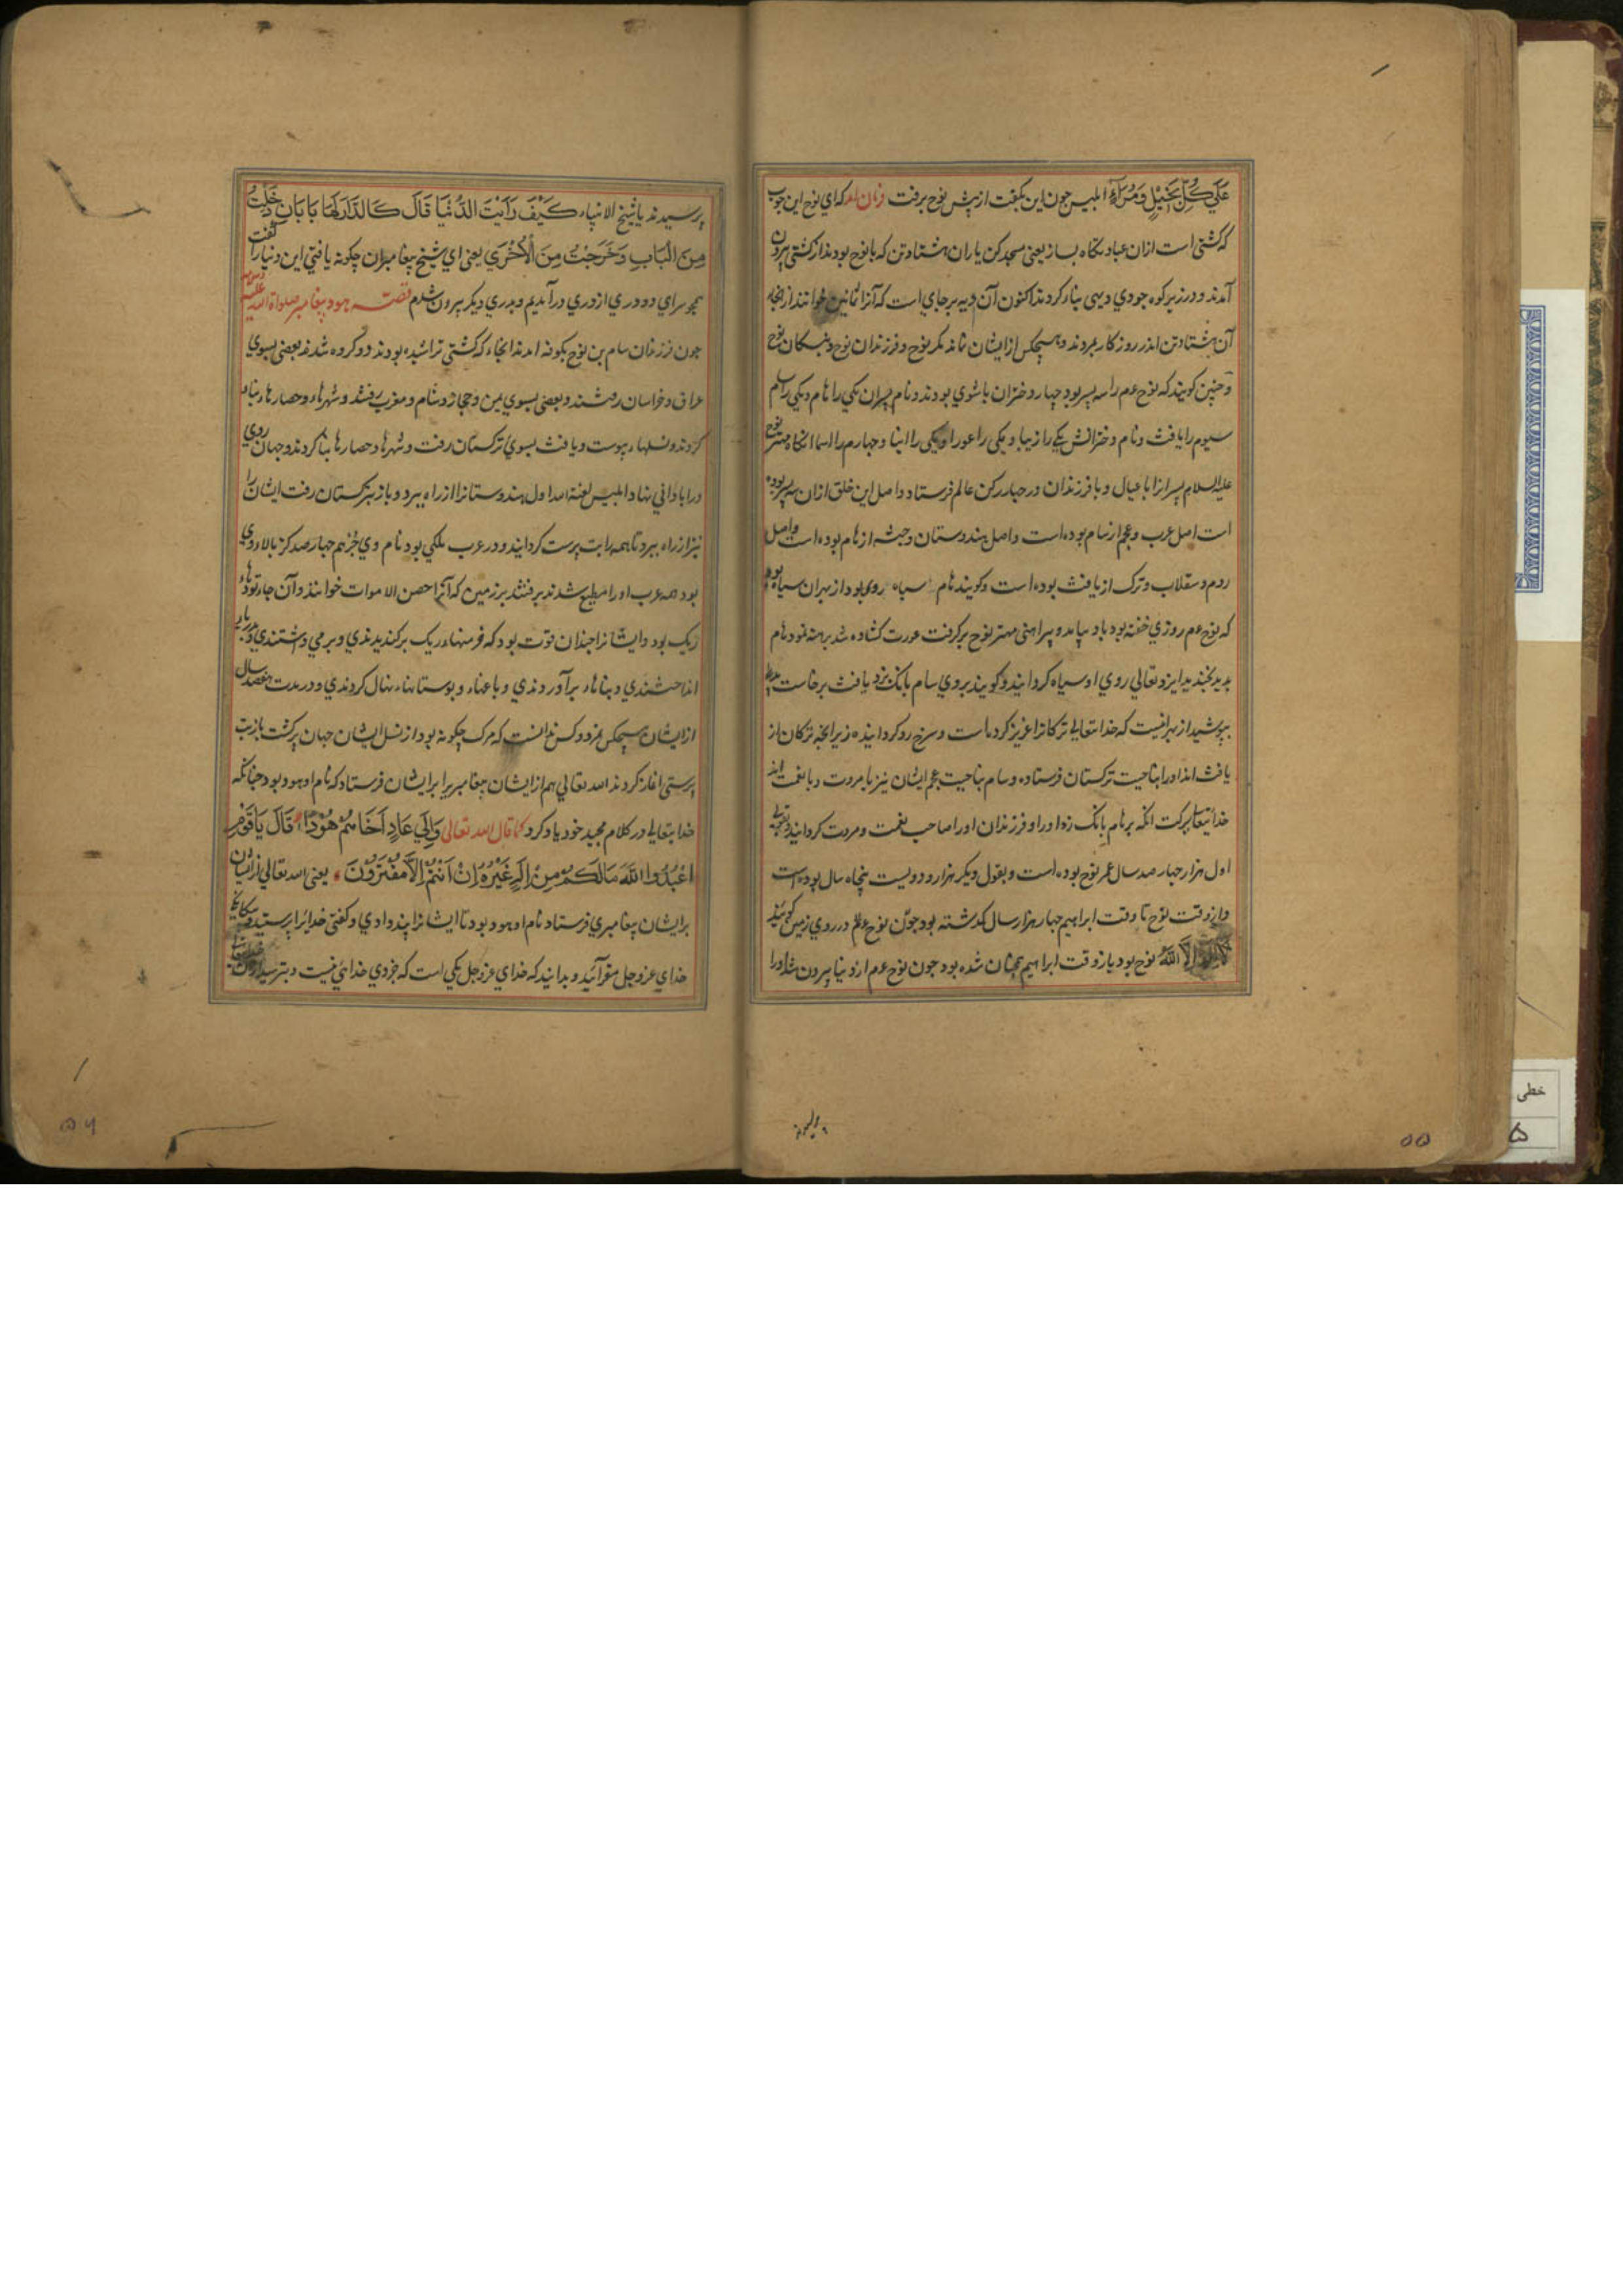 عَلَي كُلِّ بَخِيْلٍ وَمُرَاءٍ ابلیس جون این بکفت از پیش نوح برفت فرمان امد که ای نوح این جوب
که کشتی است ازان عبادتکاه بساز یعنی مسجد کن یاران هشتادتن که با نوح بودند از کشتی بیرون
آمدند و در زیر کوه جودي دیهی بناء کردند اکنون آن دیه برجاي است که آنرا ثمانین خوانند از انجا
آن هشتادتن اندر روزکار بمردند و هیچکس از ایشان نماند مکر نوح و فرزندان نوح و نبسکان نوح
و جنین کویند که نوح عم را سه پسر بود جهار دختران با شوي بودند و نام پسران یکي را هام و یکي را سام
سیوم را یافث و نام دخترانش یکي را زیبا و یکی را عورا و یکی را ابنا و جهارم را اسما انکاه مهتر نوح
علیه السلام پسرانرا با عیال و با فرزندان در جهار رکن عالم فرستاد و اصل این خلق ازان سه پسر بوده
است اصل عرب و عجم از سام بوده است و اصل هندوستان و حبشه از هام بوده است و اصل
روم و سقلاب و ترک از یافث بوده است و کویند هام سیاه روی بود از بهر ان سیاه بود
که نوح عم روزي خفته بود باد بیامد و پیراهن مهتر نوح برکرفت عورت کشاده شد برهنه نمود هام
بدید بخندید ایزد تعالي روي او سیاه کردانید و کویند بروي سام بانک بزد یافث برخاست
بپوشید از بهر انیست که خدایتعالی ترکانرا عزیز کرده است و سرخ رو کردانیده زیرا نجه ترکان از
یافث اند اورا بناحیت ترکستان فرستاده و سام بناحیت عجم ایشان نیز با مروت و با نعمت اند
خدایتعا ببرکت انکه بر هام بانک زد اورا و فرزندان اورا صاحب نعمت و مروت کردانید و بقولی
اول هزار جهار صد سال عمر نوح بوده است و بقول دیکر هزار و دویست پنجاه سال بوده است
و از وقت نوح تا وقت ابراهیم جهار هزار سال کذشته بود جون نوح عم در روي زمین کوینده
لَا اِلٰهَ اِلَّا اللهُ نوح بود باز وقت ابراهیم همچنان شده بود جون نوح عم از دنیا بیرون شد اورا
پرسیدند یا شیخ الانبیاء کَیْفَ رَاَیْتَ الدُّنْیَا قَالَ کَالدَّارِ لَهَا بَابَانِ دَخَلْتُ
مِنَ الْبَابِ وَخَرَجْتُ مِنَ الْاُخْرَي یعني اي شیخ پیغامبران چکونه یافتي این دنیا را کفت
همجو سراي دو دري از دري در آمدیم و بدري دیکر بیرون شدم قصه هود پیغامبر صلواة الله علیه
جون فرزندان سام بن نوح بکوفه امدند انجاء که کشتي تراشیده بودند دو کروه شدند بعضي بسوي
عراق و خراسان رفتند و بعضي بسوي یمن و حجاز و شام و مغرب رفتند و شهرهاء و حصارهاء بناء
کردند و نسلهاء پیوست و یافث بسوي ترکستان رفت و شهرها و حصارها بنا کردند و جهان روي
در ابادانی نهاد ابلیس لعنة الله اول هندوستانرا از راه ببرد و باز بترکستان رفت ایشان را
نیز از راه ببرد تا همه را بت پرست کردانید و در عرب ملکي بود نام وي جُرهم جهار صد کز بالاء وي
بود همه عرب اورا مطیع شدند برفتند بر زمین که آنرا احصن الاموات خوانند و آن جاء تودهاء
ریک بود و ایشانرا جندان قوت بود که فرسنهاء ریک برکندیدندي و برمي داشتندي و بدریا
انداختندي و بناهاء برآوردندي و باغهاء و بوستانهاء نهال کردندي و در مدت هفصد سال
از ایشان هیچکس نمرد و کس ندانست که مرک چکونه بود از نسل ایشان جهان پر کشت باز بت
پرستي اغاز کردند الله تعالي هم از ایشان پیغامبریرا بر ایشان فرستاد که نام او هود بود جنانکه
خدایتعالی در کلام مجید خود یاد کرد کما قال الله تعالی وَاِلَي عَادٍ اَخَاهُمْ هُوْدًا قَالَ یَاقَوْمِ
اعْبُدُوا اللهَ مَالَکُمْ مِنْ اِلٰهٍ غَیْرُهُ اِنْ اَنْتُمْ اِلَّا مُفْتَرُوْنَ یعنی الله تعالي از ایشان
بر ایشان پیغامبري فرستاد نام او هود بود تا ایشانرا پند دادي و کفتي خدایرا پرستید و بیکانکي
خداي عز وجل مقر آئید و بدانید که خداي عز وجل یکي است که جز وي خدائي نیست و بترسید ازان
۵۵
۵۶
خطی
۵